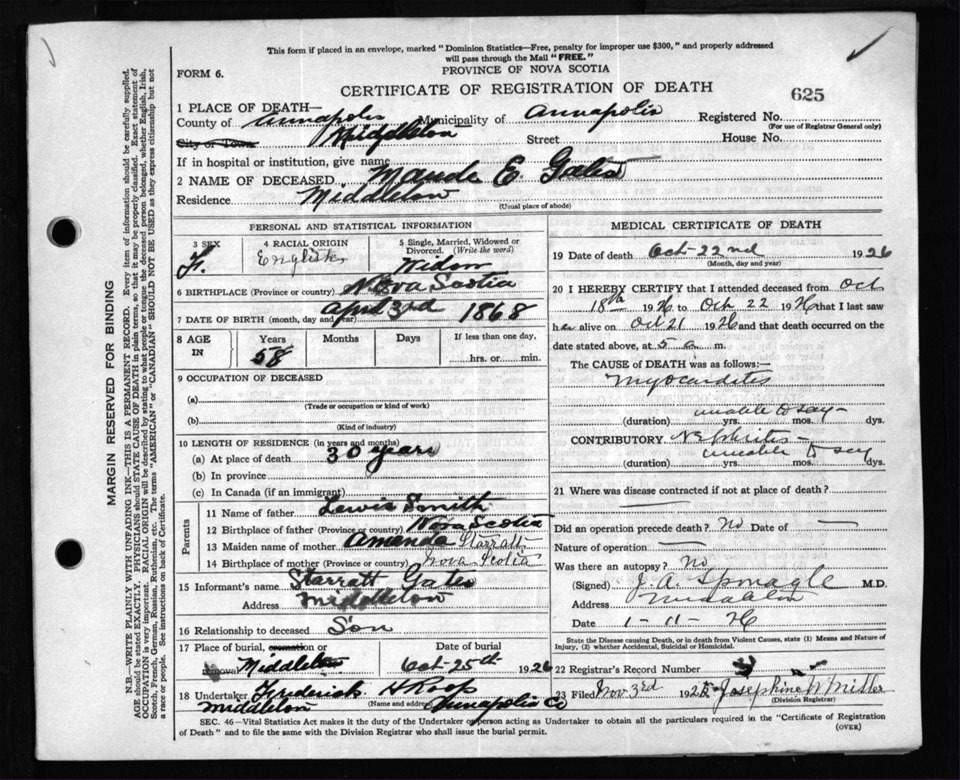 This form if placed in an envelope, marked "Dominion Statistics—Free, penalty for improper use $300," and properly addressed
will pass through the Mail "FREE."
FORM 6.
PROVINCE OF NOVA SCOTIA
CERTIFICATE OF REGISTRATION OF DEATH
625
1 PLACE OF DEATH—
County of Annapolis Municipality of Annapolis Registered No.
(For use of Registrar General only)
City or Town Middleton Street House No.
If in hospital or institution, give name
2 NAME OF DECEASED Maude E. Gates
Residence Middleton
(Usual place of abode)
PERSONAL AND STATISTICAL INFORMATION
3 SEX 4 RACIAL ORIGIN 5 Single, Married, Widowed or Divorced. (Write the word)
F. English Widow
6 BIRTHPLACE (Province or country) Nova Scotia
7 DATE OF BIRTH (month, day and year) April 3rd 1868
8 AGE IN Years Months Days If less than one day,
58 hrs. or min.
9 OCCUPATION OF DECEASED
(a)
(Trade or occupation or kind of work)
(b)
(Kind of industry)
10 LENGTH OF RESIDENCE (in years and months)
(a) At place of death 30 years
(b) In province
(c) In Canada (if an immigrant)
Parents
11 Name of father Lewis Smith
12 Birthplace of father (Province or country) Nova Scotia
13 Maiden name of mother Amanda Starratt
14 Birthplace of mother (Province or country) Nova Scotia
15 Informant's name Starratt Gates
Address Middleton
16 Relationship to deceased Son
17 Place of burial, cremation or removal Date of burial
Middleton Oct-25th 1926
18 Undertaker Frederick H Roop
(Name and address)
Middleton Annapolis Co
MEDICAL CERTIFICATE OF DEATH
19 Date of death Oct-22nd 1926
(Month, day and year)
20 I HEREBY CERTIFY that I attended deceased from Oct
18th 1926 to Oct 22 1926 that I last saw
her alive on Oct 21 1926 and that death occurred on
date stated above, at 5 a m.
The CAUSE of DEATH was as follows:
Myocarditis
unable to say-
(duration) yrs. mos. dys.
CONTRIBUTORY Nephritis-
unable to say
(duration) yrs. mos. dys.
21 Where was disease contracted if not at place of death?
Did an operation precede death? No Date of —
Nature of operation —
Was there an autopsy? No
(Signed) J. A. Sponagle M.D.
Address Middleton
Date 1-11-26
State the Disease causing Death, or in death from Violent Causes, state (1) Means and Nature of
Injury, (2) whether Accidental, Suicidal or Homicidal.
22 Registrar's Record Number
23 Filed Nov 3rd 1926 Josephine W Miller
(Division Registrar)
SEC. 46—Vital Statistics Act makes it the duty of the Undertaker or person acting as Undertaker to obtain all the particulars required in the "Certificate of Registration
of Death" and to file the same with the Division Registrar who shall issue the burial permit.
(OVER)
MARGIN RESERVED FOR BINDING
N.B.—WRITE PLAINLY WITH UNFADING INK—THIS IS A PERMANENT RECORD. Every item of information should be carefully supplied.
AGE should be stated EXACTLY. PHYSICIANS should STATE CAUSE OF DEATH in plain terms, so that it may be properly classified. Exact statement of
OCCUPATION is very important. RACIAL ORIGIN will be described by stating to what people or tongue the deceased person belonged, whether English, Irish,
Scotch, French, German, Russian, Ruthenian, etc. The terms "AMERICAN" or "CANADIAN" SHOULD NOT BE USED as they express citizenship but not
a race or people. See instructions on back of Certificate.